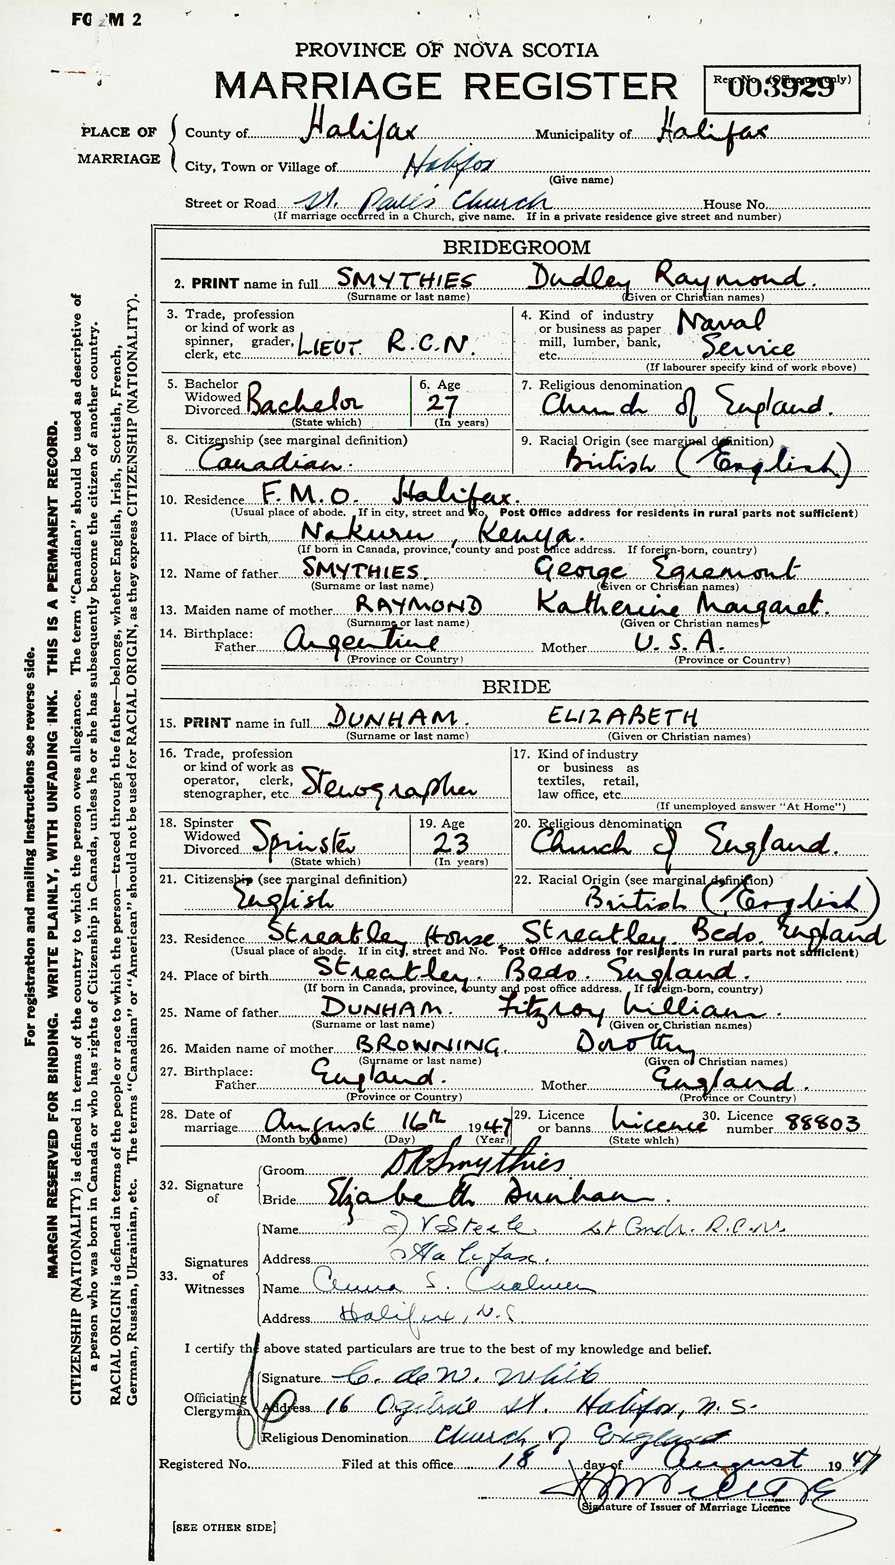 FORM 2
PROVINCE OF NOVA SCOTIA
MARRIAGE REGISTER
Reg. No. (Office use only)
003929
PLACE OF MARRIAGE
County of Halifax Municipality of Halifax
City, Town or Village of Halifax
(Give name)
Street or Road St. Paul's Church House No.
(If marriage occurred in a Church, give name. If in a private residence give street and number)
BRIDEGROOM
2. PRINT name in full SMYTHIES Dudley Raymond.
(Surname or last name) (Given or Christian names)
3. Trade, profession or kind of work as spinner, grader, clerk, etc. LIEUT. R.C.N.
4. Kind of industry or business as paper mill, lumber, bank, etc. Naval Service
(If labourer specify kind of work above)
5. Bachelor Widowed Divorced Bachelor
(State which)
6. Age 27
(In years)
7. Religious denomination Church of England.
8. Citizenship (see marginal definition) Canadian.
9. Racial Origin (see marginal definition) British (English)
10. Residence F.M.O. Halifax.
(Usual place of abode. If in city, street and No. Post Office address for residents in rural parts not sufficient)
11. Place of birth Nakuru, Kenya.
(If born in Canada, province, county and post office address. If foreign-born, country)
12. Name of father SMYTHIES. George Egremont
(Surname or last name) (Given or Christian names)
13. Maiden name of mother RAYMOND Katherine Margaret.
(Surname or last name) (Given or Christian names)
14. Birthplace: Father Argentine Mother U.S.A.
(Province or Country) (Province or Country)
BRIDE
15. PRINT name in full DUNHAM. ELIZABETH
(Surname or last name) (Given or Christian names)
16. Trade, profession or kind of work as operator, clerk, stenographer, etc. Stenographer
17. Kind of industry or business as textiles, retail, law office, etc.
(If unemployed answer "At Home")
18. Spinster Widowed Divorced Spinster
(State which)
19. Age 23
(In years)
20. Religious denomination Church of England.
21. Citizenship (see marginal definition) English
22. Racial Origin (see marginal definition) British (English)
23. Residence Streatley House, Streatley. Beds. England
(Usual place of abode. If in city, street and No. Post Office address for residents in rural parts not sufficient)
24. Place of birth Streatley. Beds. England.
(If born in Canada, province, county and post office address. If foreign-born, country)
25. Name of father DUNHAM. Fitzroy William.
(Surname or last name) (Given or Christian names)
26. Maiden name of mother BROWNING. Dorothy
(Surname or last name) (Given or Christian names)
27. Birthplace: Father England. Mother England.
(Province or Country) (Province or Country)
28. Date of marriage August 16th 1947
(Month by name) (Day) (Year)
29. Licence or banns Licence
(State which)
30. Licence number 88803
32. Signature of
Groom DRSmythies
Bride Elizabeth Dunham.
33. Signatures of Witnesses
Name J V Steele Lt Cmdr. R.C.N.
Address Halifax.
Name S.
Address Halifax, N.S.
I certify the above stated particulars are true to the best of my knowledge and belief.
Officiating Clergyman
Signature C. de W. White
Address 16 Ogilvie St. Halifax, N.S.
Religious Denomination Church of England
Registered No. Filed at this office 18 day of August 1947
Signature of Issuer of Marriage Licence
[SEE OTHER SIDE]
For registration and mailing instructions see reverse side.
MARGIN RESERVED FOR BINDING. WRITE PLAINLY, WITH UNFADING INK. THIS IS A PERMANENT RECORD.
CITIZENSHIP (NATIONALITY) is defined in terms of the country to which the person owes allegiance. The term "Canadian" should be used as descriptive of
a person who was born in Canada or who has rights of Citizenship in Canada, unless he or she has subsequently become the citizen of another country.
RACIAL ORIGIN is defined in terms of the people or race to which the person—traced through the father—belongs, whether English, Irish, Scottish, French,
German, Russian, Ukrainian, etc. The terms "Canadian" or "American" should not be used for RACIAL ORIGIN, as they express CITIZENSHIP (NATIONALITY).